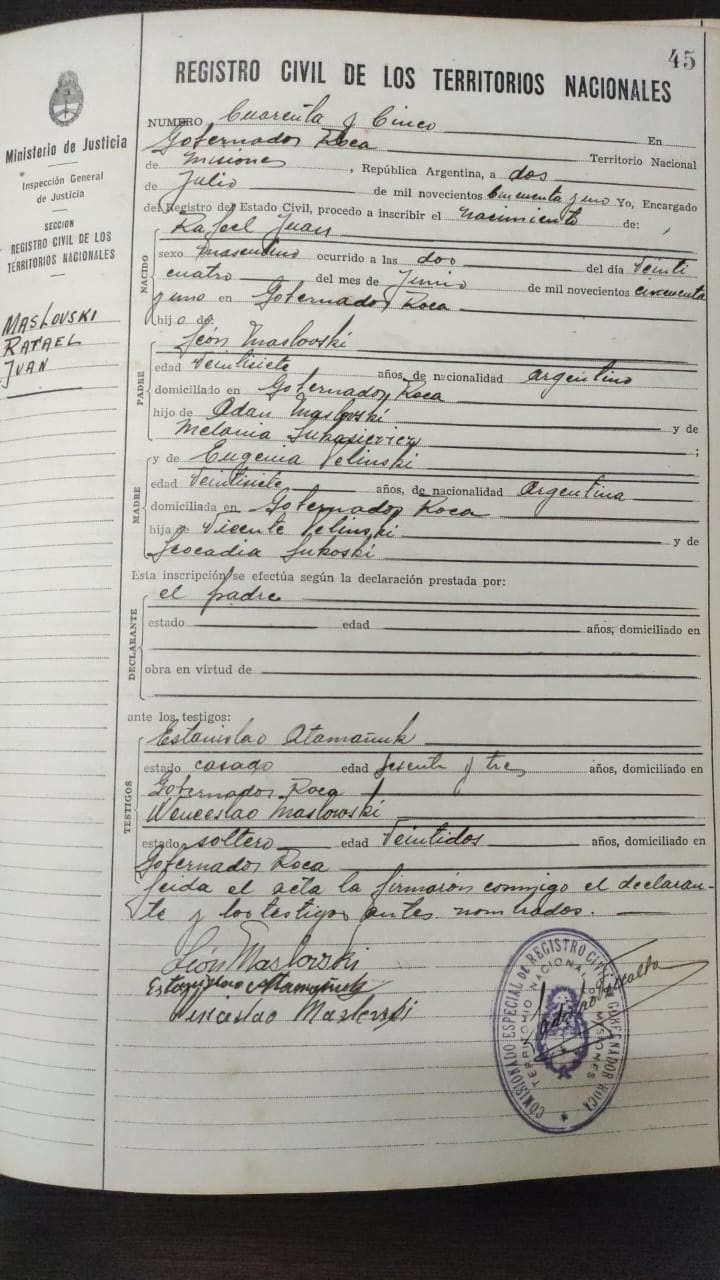 45
REGISTRO CIVIL DE LOS TERRITORIOS NACIONALES
Ministerio de Justicia
Inspección General
de Justicia
SECCION
REGISTRO CIVIL DE LOS
TERRITORIOS NACIONALES
MASLOVSKI
RAFAEL
JUAN
NUMERO Cuarenta y Cinco En
Gobernador Roca Territorio Nacional
de Misiones, República Argentina, a dos
de Julio de mil novecientos Cincuenta y uno Yo, Encargado
del Registro del Estado Civil, procedo a inscribir el nacimiento de:
NACIDO
Rafael Juan
sexo masculino ocurrido a las dos del día Veinti
cuatro del mes de Junio de mil novecientos cincuenta
y uno en Gobernador Roca
hijo de:
PADRE
León Maslovski
edad Veintisiete años, de nacionalidad argentino
domiciliado en Gobernador Roca
hijo de Adan Maslovski y de
Melania Lukasievicz;
MADRE
y de Eugenia Velinski
edad Veintisiete años, de nacionalidad Argentina
domiciliada en Gobernador Roca
hija Vicente Velinski y de
Leocadia Lukoski
Esta inscripción se efectúa según la declaración prestada por:
DECLARANTE
el padre
estado edad años, domiciliado en
obra en virtud de
ante los testigos:
TESTIGOS
Estanislao Atamañuk
estado casado edad sesenta y tres años, domiciliado en
Gobernador Roca y
Wenceslao Maslowski
estado soltero edad Veintidos años, domiciliado en
Gobernador Roca
Leida el acta la firmarón conmigo el declaran-
te y los testigos antes nombrados.
León Maslowski
COMISIONADO ESPECIAL DE REGISTRO CIVIL GOBERNADOR ROCA
TERRITORIO NACIONAL DE MISIONES